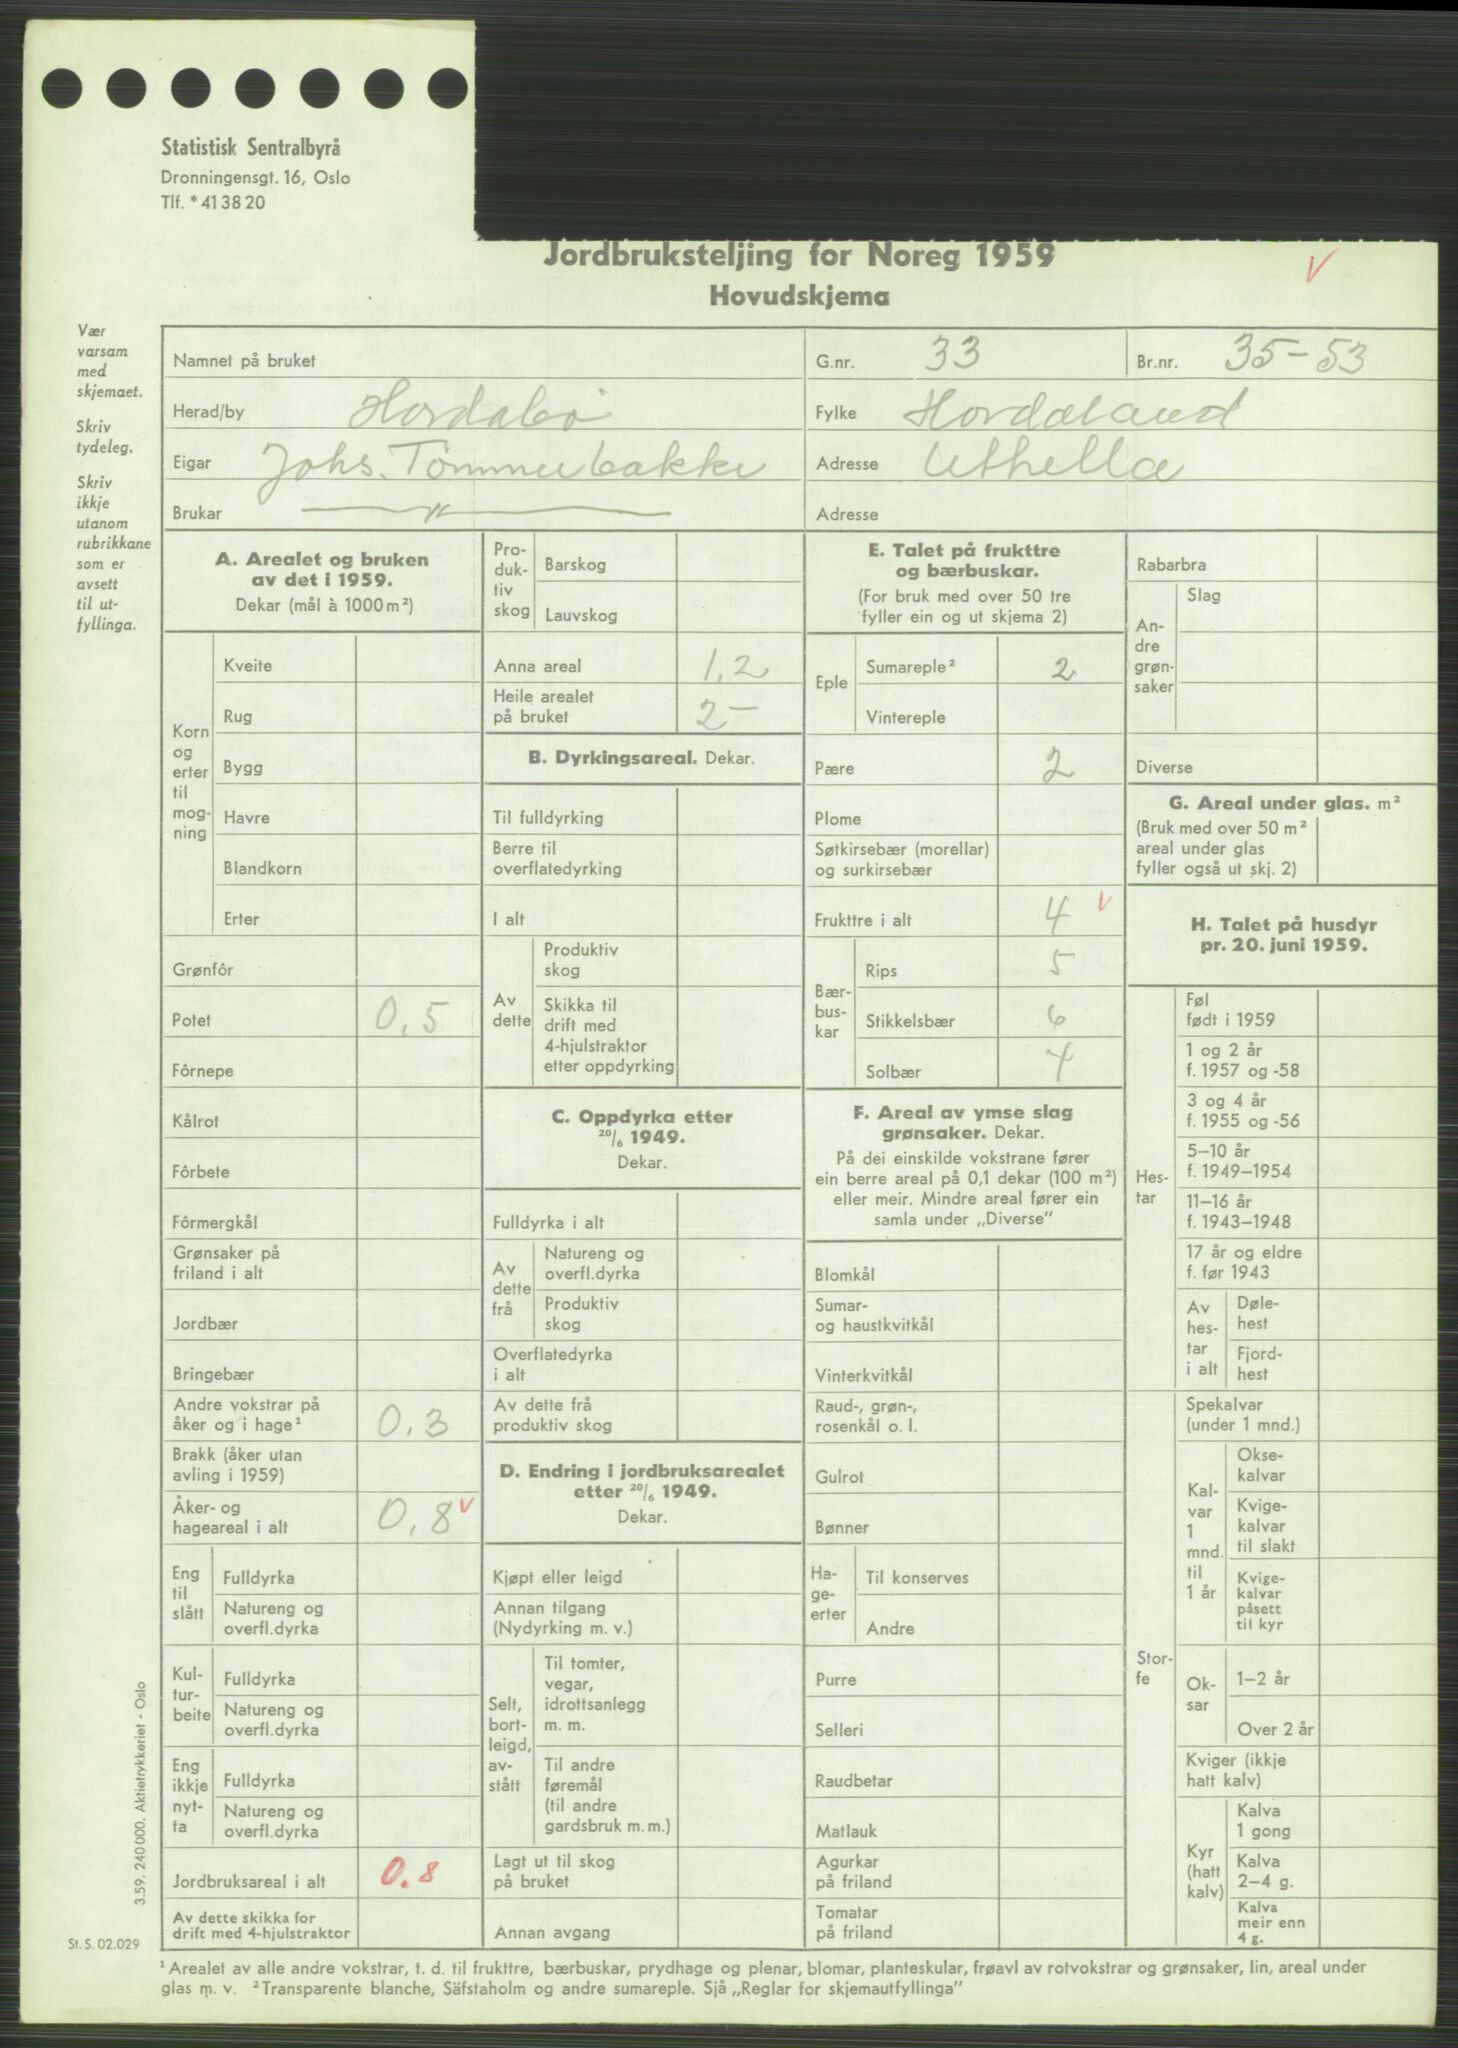 Statistisk Sentralbyrå
Dronningensgt. 16, Oslo
Tlf. *41 38 20
Jordbruksteljing for Noreg 1959
Hovudskjema
V
Vær
varsam
med
skjemaet.
Skriv
tydeleg.
Skriv
ikkje
utanom
rubrikkane
som er
avsett
til ut-
fyllinga.
Namnet på bruket
G.nr. 33
Br.nr. 35-53
Herad/by Hordabø
Fylke Hordaland
Eigar Johs. Tømmerbakke
Adresse Uthella
Brukar —"—
Adresse
A. Arealet og bruken
av det i 1959.
Dekar (mål à 1000 m²)
Korn
og
erter
til
mog-
ning
Kveite
Rug
Bygg
Havre
Blandkorn
Erter
Grønfôr
Potet 0,5
Fôrnepe
Kålrot
Fôrbete
Fôrmergkål
Grønsaker på
friland i alt
Jordbær
Bringebær
Andre vokstrar på
åker og i hage¹ 0,3
Brakk (åker utan
avling i 1959)
Åker- og
hageareal i alt 0,8 V
Eng
til
slått
Fulldyrka
Natureng og
overfl.dyrka
Kul-
tur-
beite
Fulldyrka
Natureng og
overfl.dyrka
Eng
ikkje
nyt-
ta
Fulldyrka
Natureng og
overfl.dyrka
Jordbruksareal i alt 0.8
Av dette skikka for
drift med 4-hjulstraktor
Pro-
duk-
tiv
skog
Barskog
Lauvskog
Anna areal 1,2
Heile arealet
på bruket 2-
B. Dyrkingsareal. Dekar.
Til fulldyrking
Berre til
overflatedyrking
I alt
Av
dette
Produktiv
skog
Skikka til
drift med
4-hjulstraktor
etter oppdyrking
C. Oppdyrka etter
20/6 1949.
Dekar.
Fulldyrka i alt
Av
dette
frå
Natureng og
overfl.dyrka
Produktiv
skog
Overflatedyrka
i alt
Av dette frå
produktiv skog
D. Endring i jordbruksarealet
etter 20/6 1949.
Dekar.
Kjøpt eller leigd
Annan tilgang
(Nydyrking m. v.)
Selt,
bort-
leigd,
av-
stått
Til tomter,
vegar,
idrottsanlegg
m. m.
Til andre
føremål
(til andre
gardsbruk m. m.)
Lagt ut til skog
på bruket
Annan avgang
E. Talet på frukttre
og bærbuskar.
(For bruk med over 50 tre
fyller ein og ut skjema 2)
Eple
Sumareple² 2
Vintereple
Pære 2
Plome
Søtkirsebær (morellar)
og surkirsebær
Frukttre i alt 4 V
Bær-
bus-
kar
Rips 5
Stikkelsbær 6
Solbær 4
F. Areal av ymse slag
grønsaker. Dekar.
På dei einskilde vokstrane fører
ein berre areal på 0,1 dekar (100 m²)
eller meir. Mindre areal fører ein
samla under „Diverse”
Blomkål
Sumar-
og haustkvitkål
Vinterkvitkål
Raud-, grøn-,
rosenkål o. l.
Gulrot
Bønner
Ha-
ge-
erter
Til konserves
Andre
Purre
Selleri
Raudbetar
Matlauk
Agurkar
på friland
Tomatar
på friland
Rabarbra
An-
dre
grøn-
saker
Slag
Diverse
G. Areal under glas. m²
(Bruk med over 50 m²
areal under glas
fyller også ut skj. 2)
H. Talet på husdyr
pr. 20. juni 1959.
Hes-
tar
Føl
født i 1959
1 og 2 år
f. 1957 og -58
3 og 4 år
f. 1955 og -56
5–10 år
f. 1949–1954
11–16 år
f. 1943–1948
17 år og eldre
f. før 1943
Av
hes-
tar
i alt
Døle-
hest
Fjord-
hest
Stor-
fe
Spekalvar
(under 1 mnd.)
Kal-
var
1
mnd.
til
1 år
Okse-
kalvar
Kvige-
kalvar
til slakt
Kvige-
kalvar
påsett
til kyr
Ok-
sar
1–2 år
Over 2 år
Kviger (ikkje
hatt kalv)
Kyr
(hatt
kalv)
Kalva
1 gong
Kalva
2–4 g.
Kalva
meir enn
4 g.
3.59. 240 000. Aktietrykkeriet - Oslo
St. S. 02.029
¹ Arealet av alle andre vokstrar, t. d. til frukttre, bærbuskar, prydhage og plenar, blomar, planteskular, frøavl av rotvokstrar og grønsaker, lin, areal under
glas m. v. ² Transparente blanche, Säfstaholm og andre sumareple. Sjå „Reglar for skjemautfyllinga”